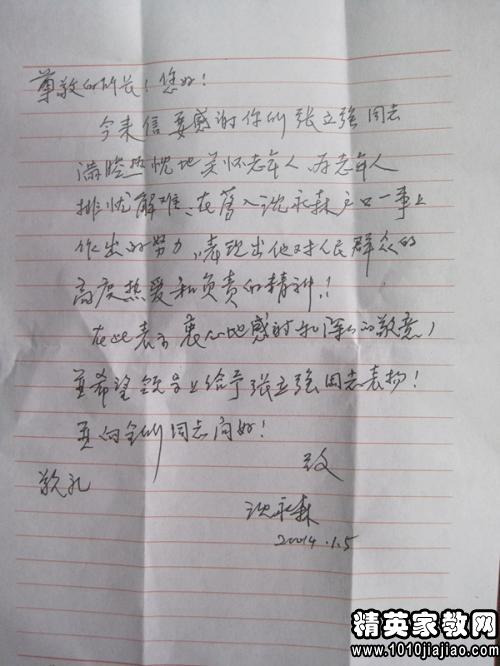 尊敬的所长！您好！
今来信要感谢你们张立强同志
满腔热忱地关怀老年人、为老年人
排忧解难、在落入沈永森户口一事上
作出的努力，表现出他对人民群众的
高度热爱和负责的精神！
在此表示衷心地感谢和深深的敬意！
并希望领导上给予张立强同志表扬！
并向全所同志问好！
致
敬礼
沈永森
2014.1.5
精英家教网
www.1010jiajiao.com